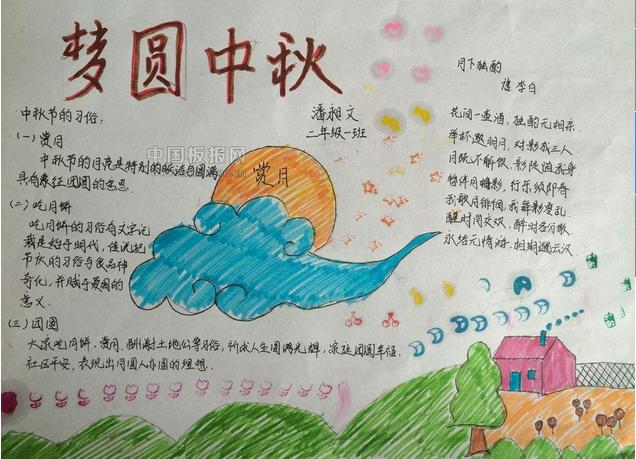 梦圆中秋
中秋节的习俗:
(一) 赏月
中秋节的月亮是特别的皎洁与圆满,
具有象征团圆的意思
(二) 吃月饼
吃月饼的习俗有文字记
载是始于明代, 但流把
节庆的习俗与食品神
奇化, 并赋于团圆的
意义.
(三) 团圆
大家吃月饼、赏月、酬谢土地公等习俗, 祈求人生圆满光辉, 家庭团圆幸福,
社区平安, 表现出月圆人亦圆的理想.
潘昶文
二年级一班
赏月
中国板报网
月下独酌
唐 李白
花间一壶酒, 独酌无相亲.
举杯邀明月, 对影成三人.
月既不解饮, 影徒随我身
暂伴月将影, 行乐须即春
我歌月徘徊, 我舞影零乱
醒时同交欢, 醉时各分散
永结无情游, 相期邈云汉.